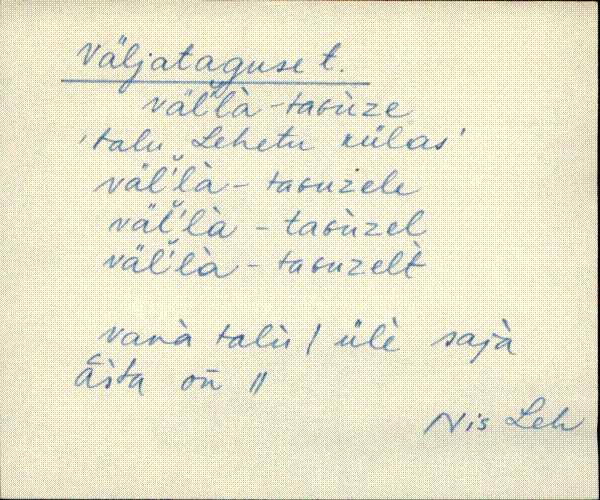 Väljataguse t.
väĺ̆l̀à-taɢùze
'talu Lehetu külas'
väĺ̆l̀à-taɢuzele
väĺ̆l̀à-taɢùzel
väĺ̆l̀à-taɢuzelt̀
vanà talù | ülè sajà
āsta on̄ ||
Nis Leh